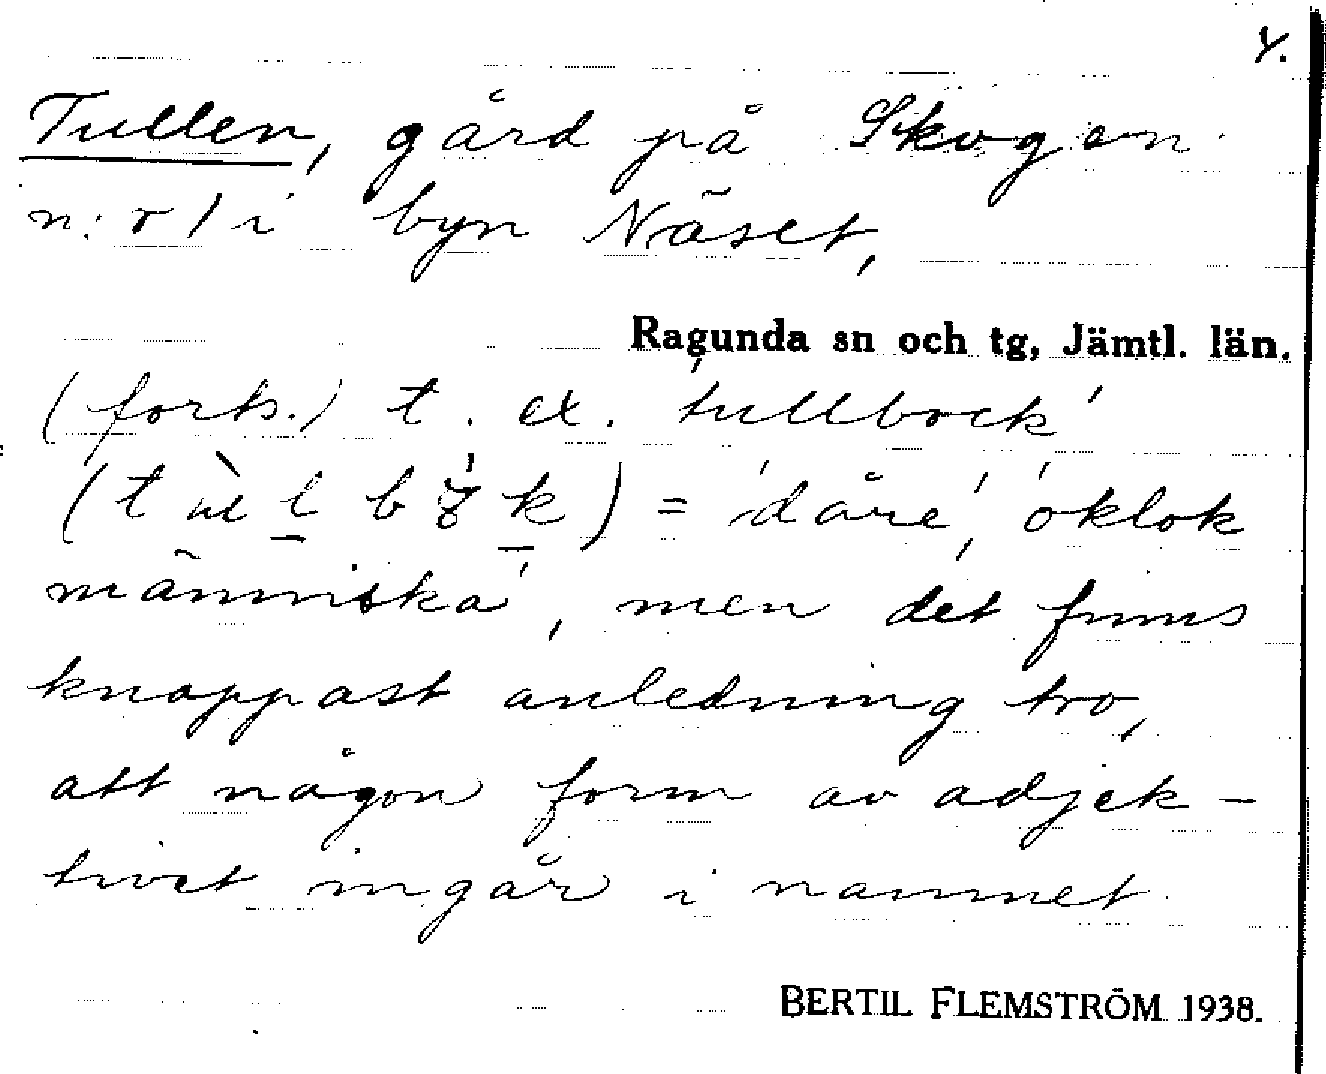 4.
Tullen, gård på Skogen
n:r 1 i byn Näset,
Ragunda sn och tg, Jämtl. län.
(forts.) t. ex. 'tullbock'
) = 'dåre', 'oklok
människa', men det finns
knappast anledning tro,
att någon form av adjek-
tivet ingår i namnet.
BERTIL FLEMSTRÖM 1938.